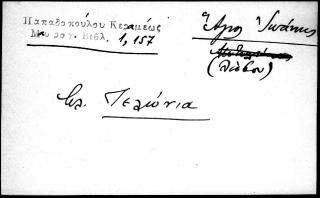 Παπαδοπούλου Κεραμέως
Μαυρογ. Βιβλ. 1,157
Ἅγιος Ἰωάννης
(Λέσβου)
βλ. Πελώνια